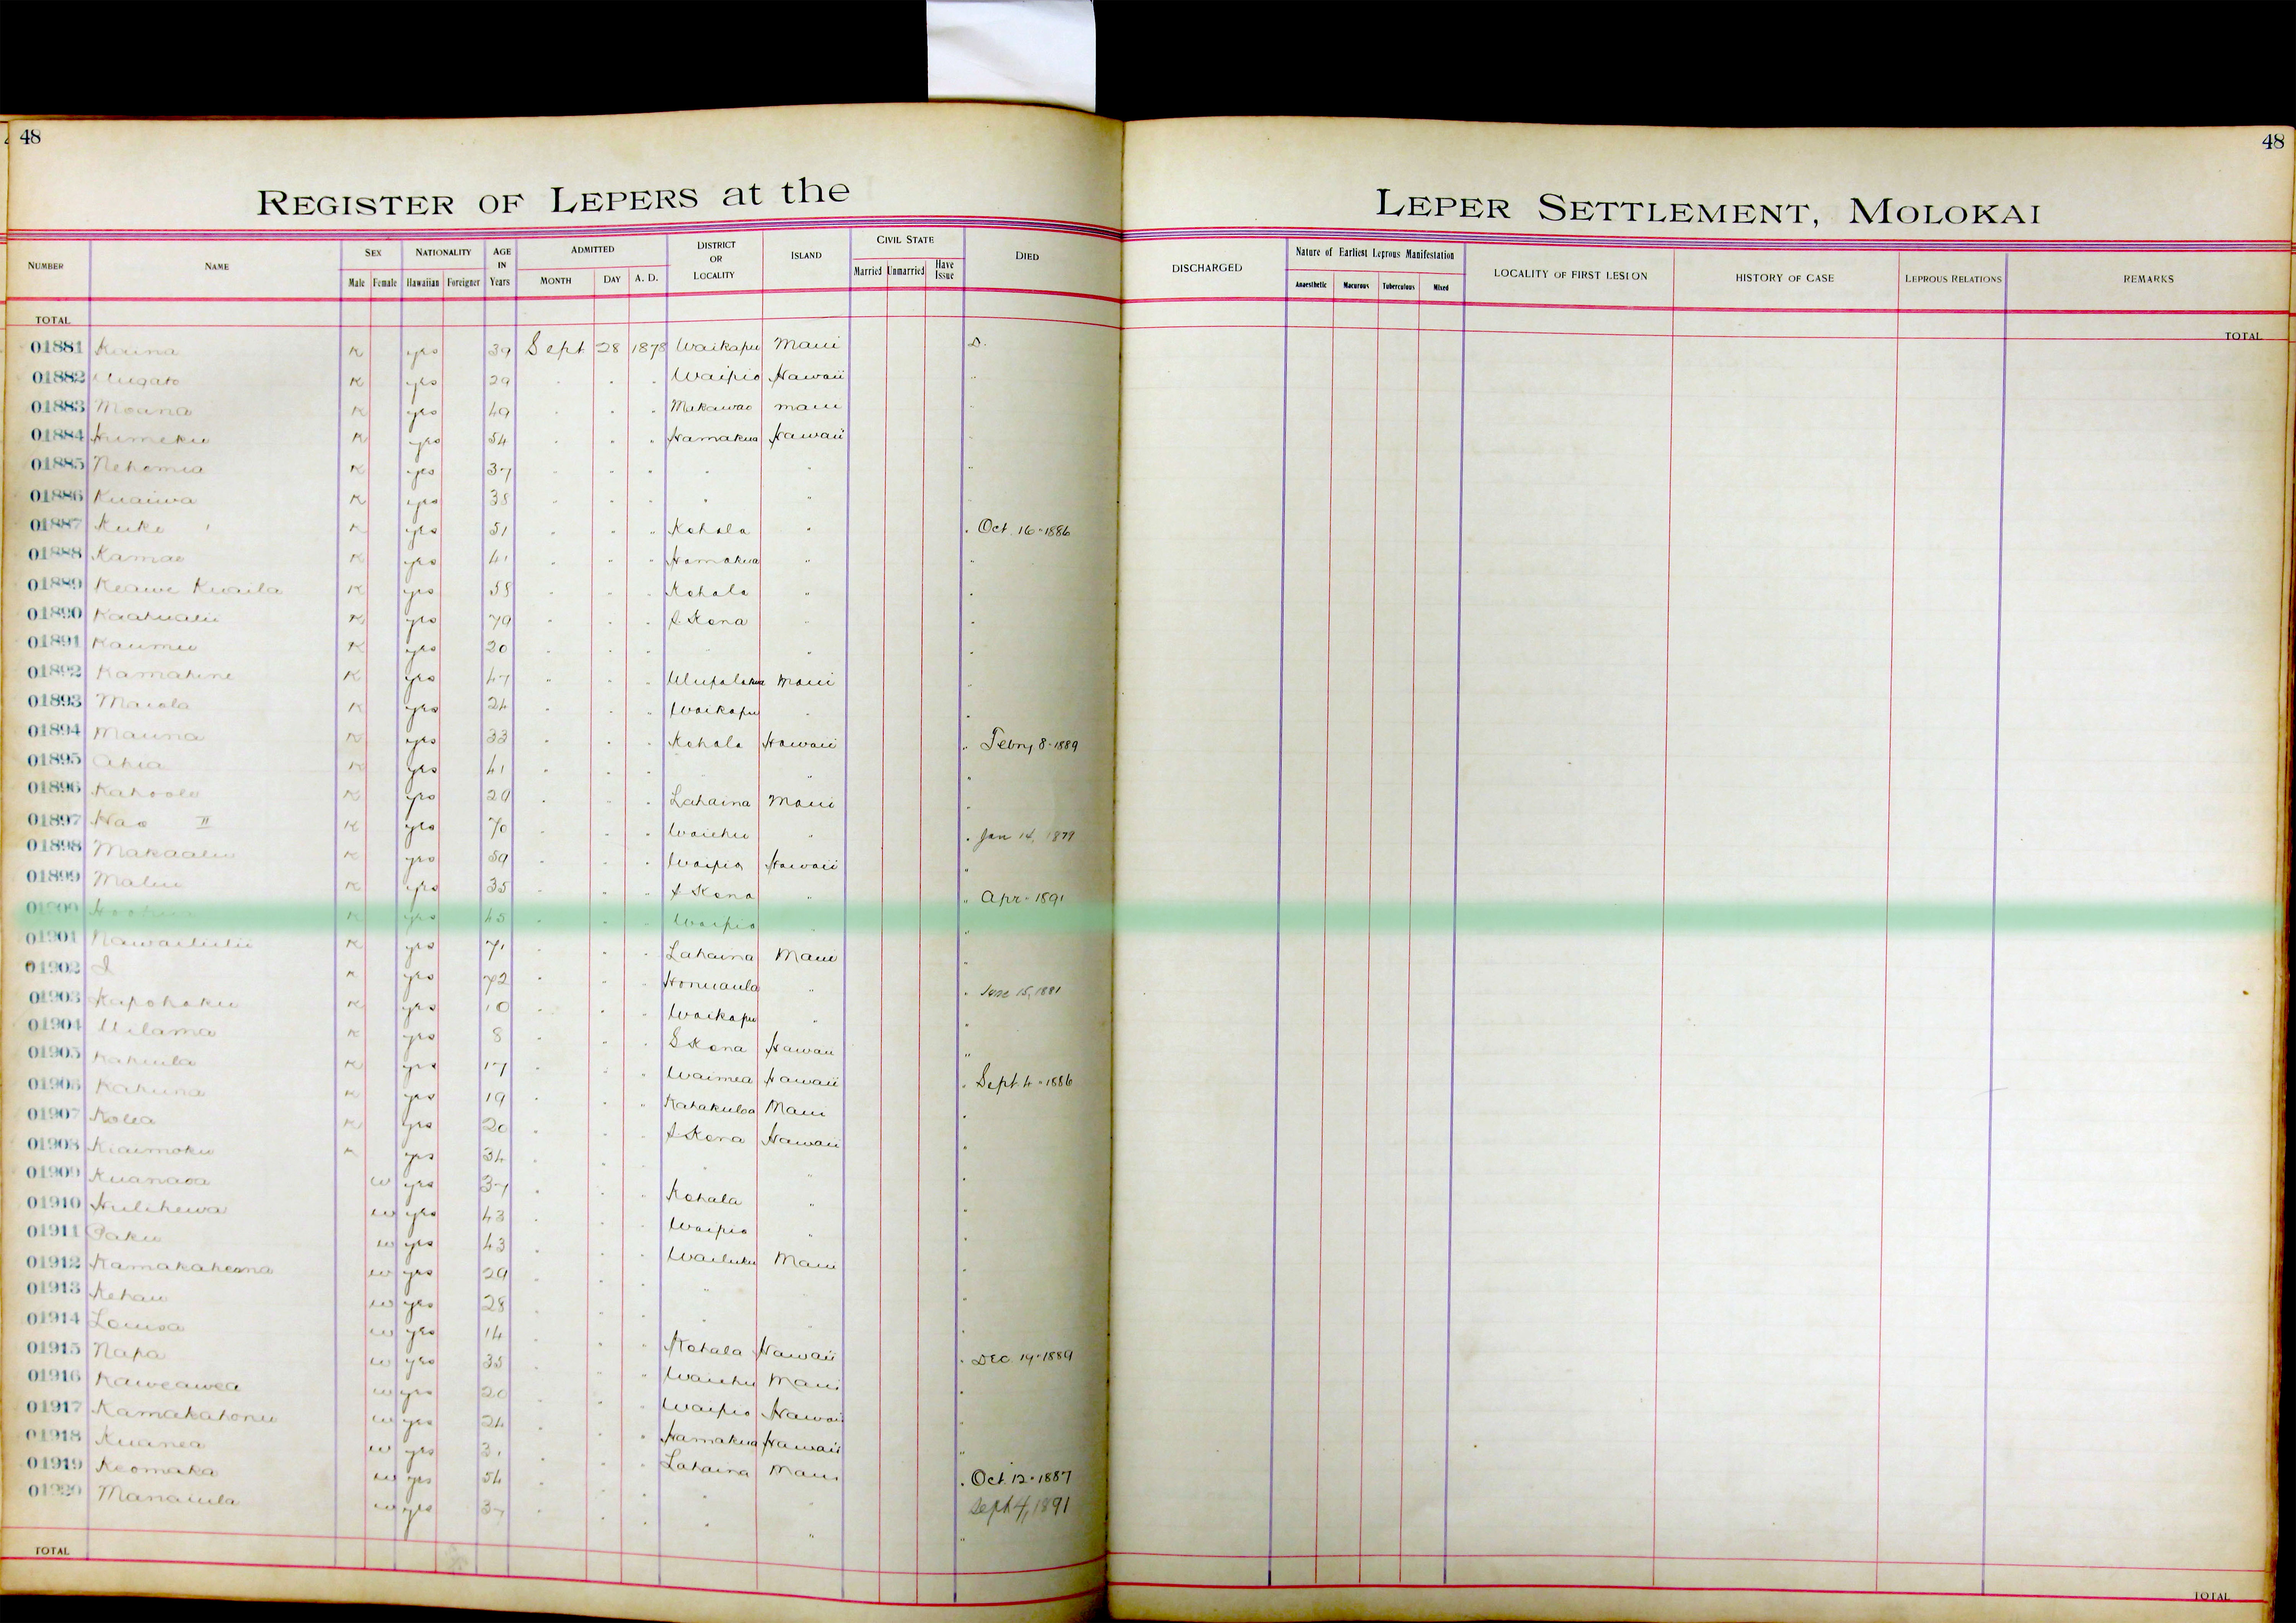 48
48
REGISTER OF LEPERS at the
LEPER SETTLEMENT, MOLOKAI
NUMBER NAME SEX NATIONALITY AGE IN Years ADMITTED DISTRICT OR LOCALITY ISLAND CIVIL STATE DIED DISCHARGED Nature of Earliest Leprous Manifestation LOCALITY OF FIRST LESION HISTORY OF CASE LEPROUS RELATIONS REMARKS
Male Female Hawaiian Foreigner MONTH DAY A. D. Married Unmarried Have Issue Anaesthetic Macurous Tuberculous Mixed
TOTAL TOTAL
01881 K yes 39 Sept 28 1878 Waikapu Maui D.
01882 K yes 29 " " " Waipio Hawaii "
01883 Moana K yes 49 " " " Makawao Maui "
01884 Humeku K yes 54 " " " Hamakua Hawaii "
01885 Nehemia K yes 37 " " " " " "
01886 Kuaiwa K yes 38 " " " " " "
01887 Kuke K yes 51 " " " Kohala " " Oct. 16 - 1886
01888 Kamae K yes 41 " " " Hamakua " "
01889 Keawe Kuaila K yes 58 " " " Kohala " "
01890 Kaahualii K yes 79 " " " S Kona " "
01891 Kaumu K yes 20 " " " " " "
01892 Kamahine K yes 47 " " " Ulupalakua Maui "
01893 Maiola K yes 24 " " " Waikapu " "
01894 Mauna K yes 33 " " " Kohala Hawaii " Febry 8 - 1889
01895 Ahia K yes 41 " " " " "
01896 Kahoole K yes 29 " " " Lahaina Maui "
01897 Hao II K yes 70 " " " Waiehu " " Jan 14, 1879
01898 Makaalu K yes 59 " " " Waipio Hawaii "
01899 Malu K yes 35 " " " S Kona " " Apr - 1891
01900 K yes 45 " " " Waipio " "
01901 Nawailulii K yes 71 " " " Lahaina Maui "
01902 I K yes 72 " " " Honuaula " " June 15, 1881
01903 Kapohaku K yes 10 " " " Waikapu " "
01904 Uilama K yes 8 " " " S Kona Hawaii "
01905 Kahiula K yes 17 " " " Waimea Hawaii " Sept. 4 - 1886
01906 Kahuna K yes 19 " " " Kahakuloa Maui "
01907 Kolea K yes 20 " " " S Kona Hawaii "
01908 Kiaimoku K yes 34 " " " " "
01909 Kuanaoa w yes 37 " " " Kohala " "
01910 Hulihewa w yes 43 " " " Waipio " "
01911 Paku w yes 43 " " " Wailuku Maui "
01912 Kamakaheana w yes 29 " " " " "
01913 Kehau w yes 28 " " " " "
01914 Louisa w yes 14 " " " Kohala Hawaii " Dec. 19 - 1889
01915 Napa w yes 35 " " " Waiehu Maui "
01916 Kaweawea w yes 20 " " " Waipio Hawaii "
01917 Kamakahonu w yes 24 " " " Hamakua Hawaii "
01918 Kuanea w yes 31 " " " Lahaina Maui " Oct 12 - 1887
01919 Keomaka w yes 54 " " " " " Sept 4, 1891
01920 Manaiula w yes 37 " " " " " "
TOTAL TOTAL